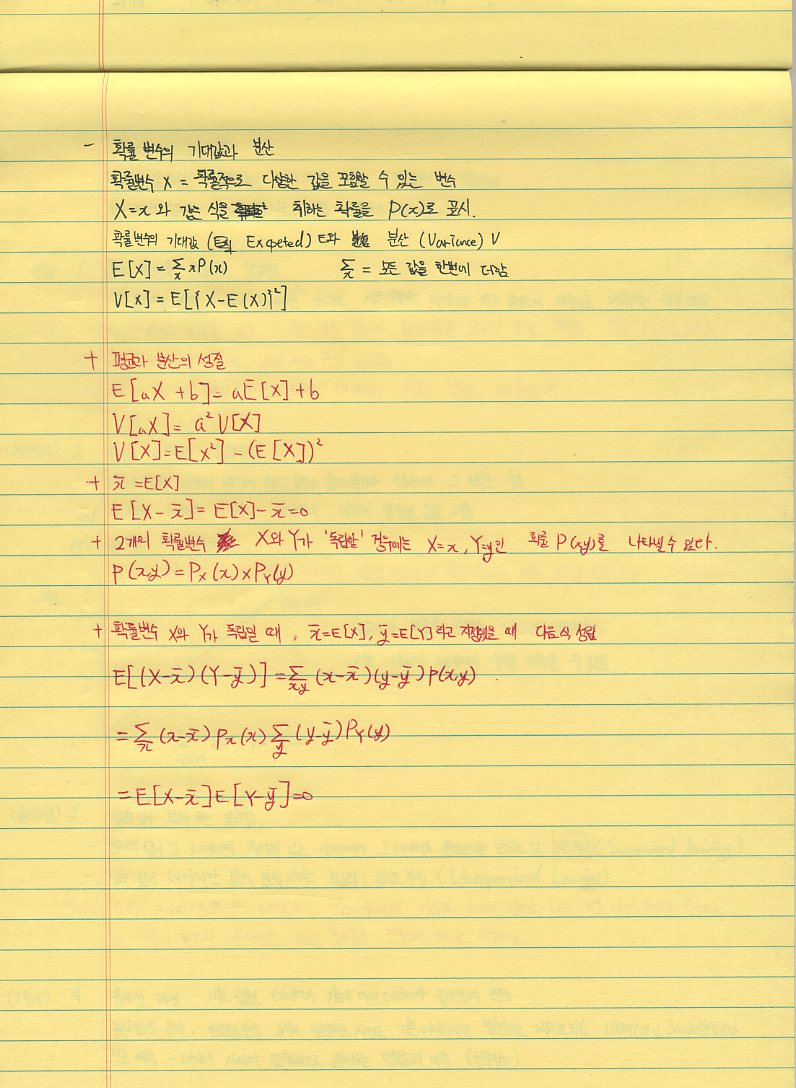 - 확률 변수의 기대값과 분산
확률변수 X = 확률적으로 다양한 값을 포함할 수 있는 변수
X=x 와 같은 식을 취하는 확률을 P(x)로 표시.
확률변수의 기대값 (Expeted) E와 분산 (Variance) V
E[X] = Σx xP(x) Σx = 모든 값을 한번에 더함
V[X] = E[{X-E(X)}²]
+ 평균과 분산의 성질
E[aX + b] = aE[X] + b
V[aX] = a² V[X]
V[X] = E[X²] - (E[X])²
+ x̄ = E[X]
E[X - x̄] = E[X] - x̄ = 0
+ 2개의 확률변수 X와 Y가 '독립할' 경우에는 X=x, Y=y인 확률 P(x,y)를 나타낼 수 있다.
P(x,y) = Px(x) × PY(y)
+ 확률변수 X와 Y가 독립일 때, x̄=E[X], ȳ=E[Y]라고 지정했을 때 다음식 성립
E[(X-x̄)(Y-ȳ)] = Σxy (x-x̄)(y-ȳ)P(x,y)
= Σx (x-x̄) Px(x) Σy (y-ȳ) PY(y)
= E[X-x̄]E[Y-ȳ] = 0